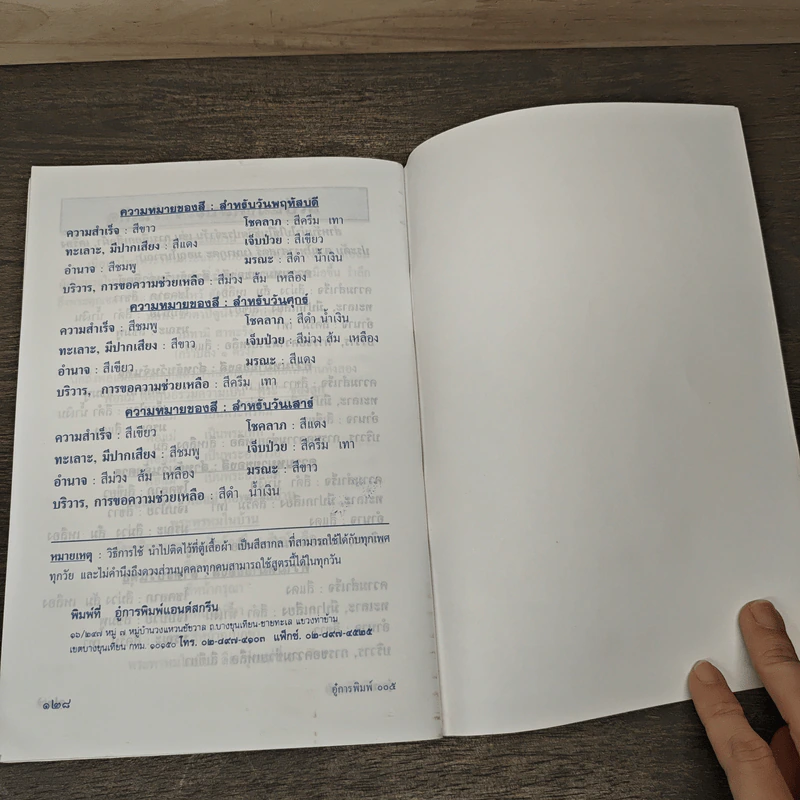 ความหมายของสี : สำหรับวันพฤหัสบดี
ความสำเร็จ : สีขาว โชคลาภ : สีครีม เทา
ทะเลาะ, มีปากเสียง : สีแดง เจ็บป่วย : สีเขียว
อำนาจ : สีชมพู มรณะ : สีดำ น้ำเงิน
บริวาร, การขอความช่วยเหลือ : สีม่วง ส้ม เหลือง
ความหมายของสี : สำหรับวันศุกร์
ความสำเร็จ : สีชมพู โชคลาภ : สีดำ น้ำเงิน
ทะเลาะ, มีปากเสียง : สีขาว เจ็บป่วย : สีม่วง ส้ม เหลือง
อำนาจ : สีเขียว มรณะ : สีแดง
บริวาร, การขอความช่วยเหลือ : สีครีม เทา
ความหมายของสี : สำหรับวันเสาร์
ความสำเร็จ : สีเขียว โชคลาภ : สีแดง
ทะเลาะ, มีปากเสียง : สีชมพู เจ็บป่วย : สีครีม เทา
อำนาจ : สีม่วง ส้ม เหลือง มรณะ : สีขาว
บริวาร, การขอความช่วยเหลือ : สีดำ น้ำเงิน
หมายเหตุ : วิธีการใช้ นำไปติดไว้ที่ตู้เสื้อผ้า เป็นสีสากล ที่สามารถใช้ได้กับทุกเพศ
ทุกวัย และไม่คำนึงถึงดวงส่วนบุคคลทุกคนสามารถใช้สูตรนี้ได้ในทุกวัน
พิมพ์ที่ อู่การพิมพ์แอนด์สกรีน
๑๖/๒๔๗ หมู่ ๗ หมู่บ้านวงแหวนชัชวาล ถ.บางขุนเทียน-ชายทะเล แขวงท่าข้าม
เขตบางขุนเทียน กทม. ๑๐๑๕๐ โทร. ๐๒-๘๙๗-๔๑๐๓ แฟ็กซ์. ๐๒-๘๙๗-๔๕๒๕
อู่การพิมพ์ ๐๐๕
๑๒๘